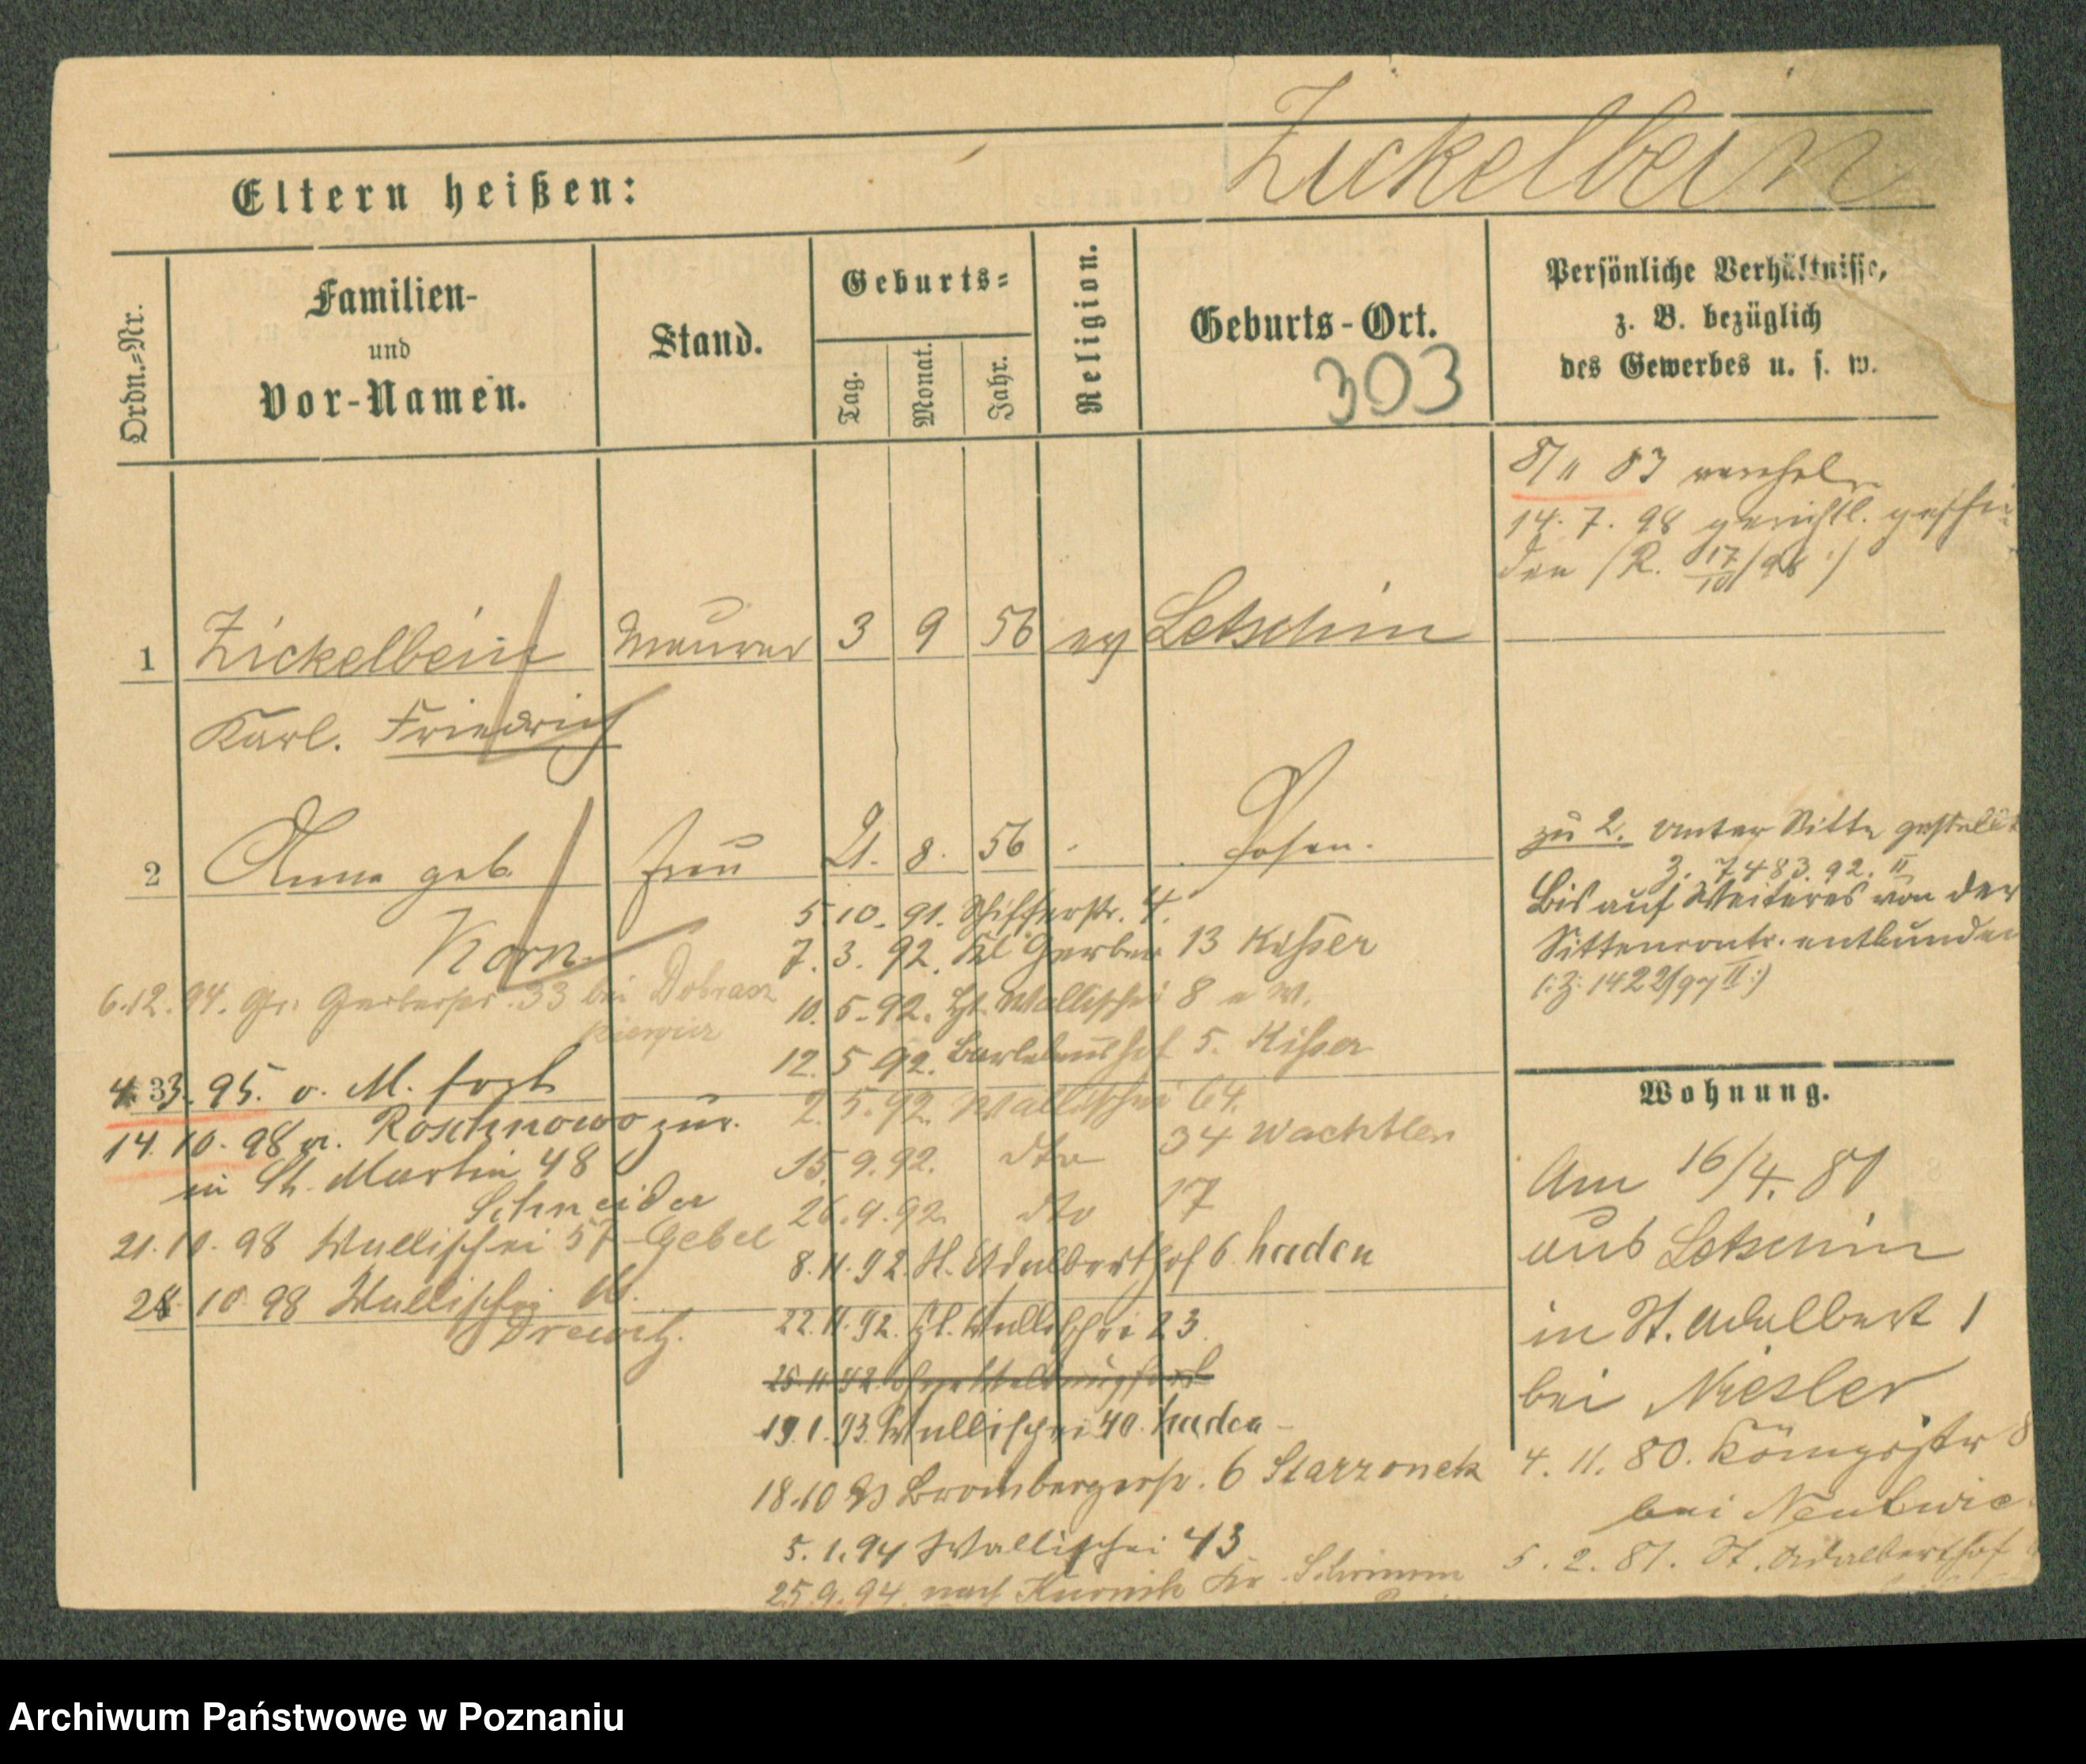 Zickelbein
Eltern heißen:
Ordn.-Nr.
Familien-
und
Vor-Namen.
Stand.
Geburts-
Tag.
Monat.
Jahr.
Religion.
Geburts-Ort.
303
Persönliche Verhältnisse,
z. B. bezüglich
des Gewerbes u. s. w.
14. 7. 98 gerichtl. geschie-
den (R. 17/10/98)
1 Zickelbein Maurer 3 9 56 ev Letschin
Karl. Friedrich
2 Anna geb. Frau 21. 8. 56 Posen.
Korn
zu 2. Unter Sitte gestellt
Z. 7483. 92. II
Bis auf Weiteres von der
Sittencontr. entbunden
(: Z. 1422/97 II :)
5. 10. 91. Schifferstr. 4.
7. 3. 92. Kl Gerber 13
10. 5. 92. Wallischei 8
12. 5 92. 5.
2. 5. 92. Wallischei 64.
15. 9. 92. dto 34 Wachtler
26. 9. 92. dto 17
8. 11. 92. St. Adalberthof 6 haden
22. 11. 92. Wallischei 23.
19. 1. 93. Wallischei 40. haden
18. 10 93 Brombergerstr. 6 Starzonek
5. 1. 94 Wallischei 43
25. 9. 94. nach Kurnik Kr. Schrimm
6. 12. 94. Gr. Gerberstr. 33 bei
4. 3. 95. v. M. fort
14. 10. 98 v. Roschnowo zur.
in St. Martin 48
Schneider
21. 10. 98 Wallischei 57 Gebel
28. 10 98 Wallischei
Wohnung.
Am 16/4. 80
aus Letschin
in St. Adalbert 1
bei Niesler
4. 11. 80. Königstr 8
bei
5. 2. 81. St. Adalberthof
Archiwum Państwowe w Poznaniu